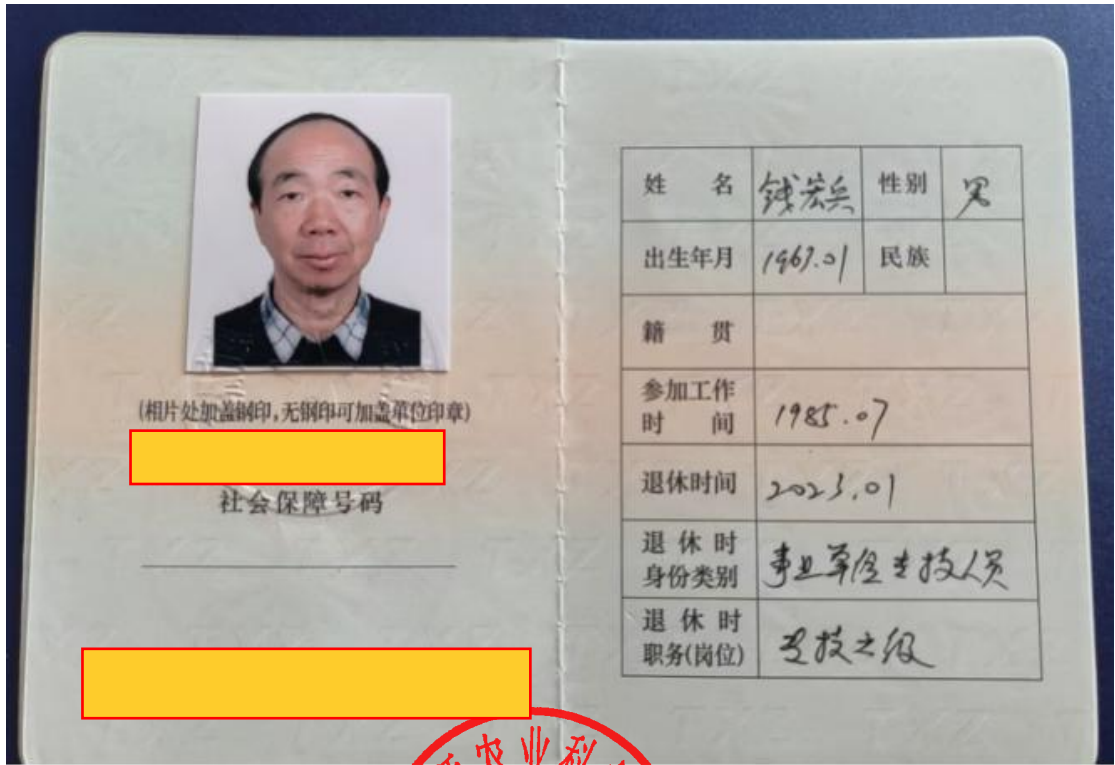 (相片处加盖钢印,无钢印可加盖单位印章)
社会保障号码
姓 名 钱宏兵 性别 男
出生年月 1963.01 民族
籍 贯
参加工作
时 间 1985.07
退休时间 2023.01
退 休 时
身份类别 事业单位专技人员
退 休 时
职务(岗位) 专技七级
农业科